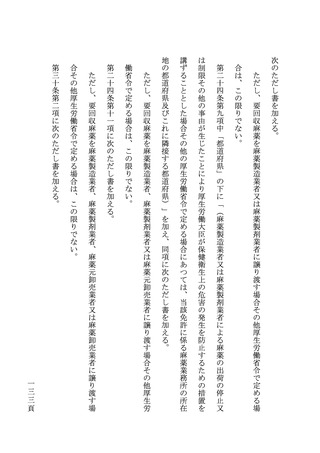 次のただし書を加える。
ただし、要回収麻薬を麻薬製造業者又は麻薬製剤業者に譲り渡す場合その他厚生労働省令で定める場
合は、この限りでない。
第二十四条第九項中「都道府県」の下に「（麻薬製造業者又は麻薬製剤業者による麻薬の出荷の停止又
は制限その他の事由が生じたことにより厚生労働大臣が保健衛生上の危害の発生を防止するための措置を
講ずることとした場合その他の厚生労働省令で定める場合にあつては、当該免許に係る麻薬業務所の所在
地の都道府県及びこれに隣接する都道府県）」を加え、同項に次のただし書を加える。
ただし、要回収麻薬を麻薬製造業者、麻薬製剤業者又は麻薬元卸売業者に譲り渡す場合その他厚生労
働省令で定める場合は、この限りでない。
第二十四条第十一項に次のただし書を加える。
ただし、要回収麻薬を麻薬製造業者、麻薬製剤業者、麻薬元卸売業者又は麻薬卸売業者に譲り渡す場
合その他厚生労働省令で定める場合は、この限りでない。
第三十条第二項に次のただし書を加える。
一三三頁